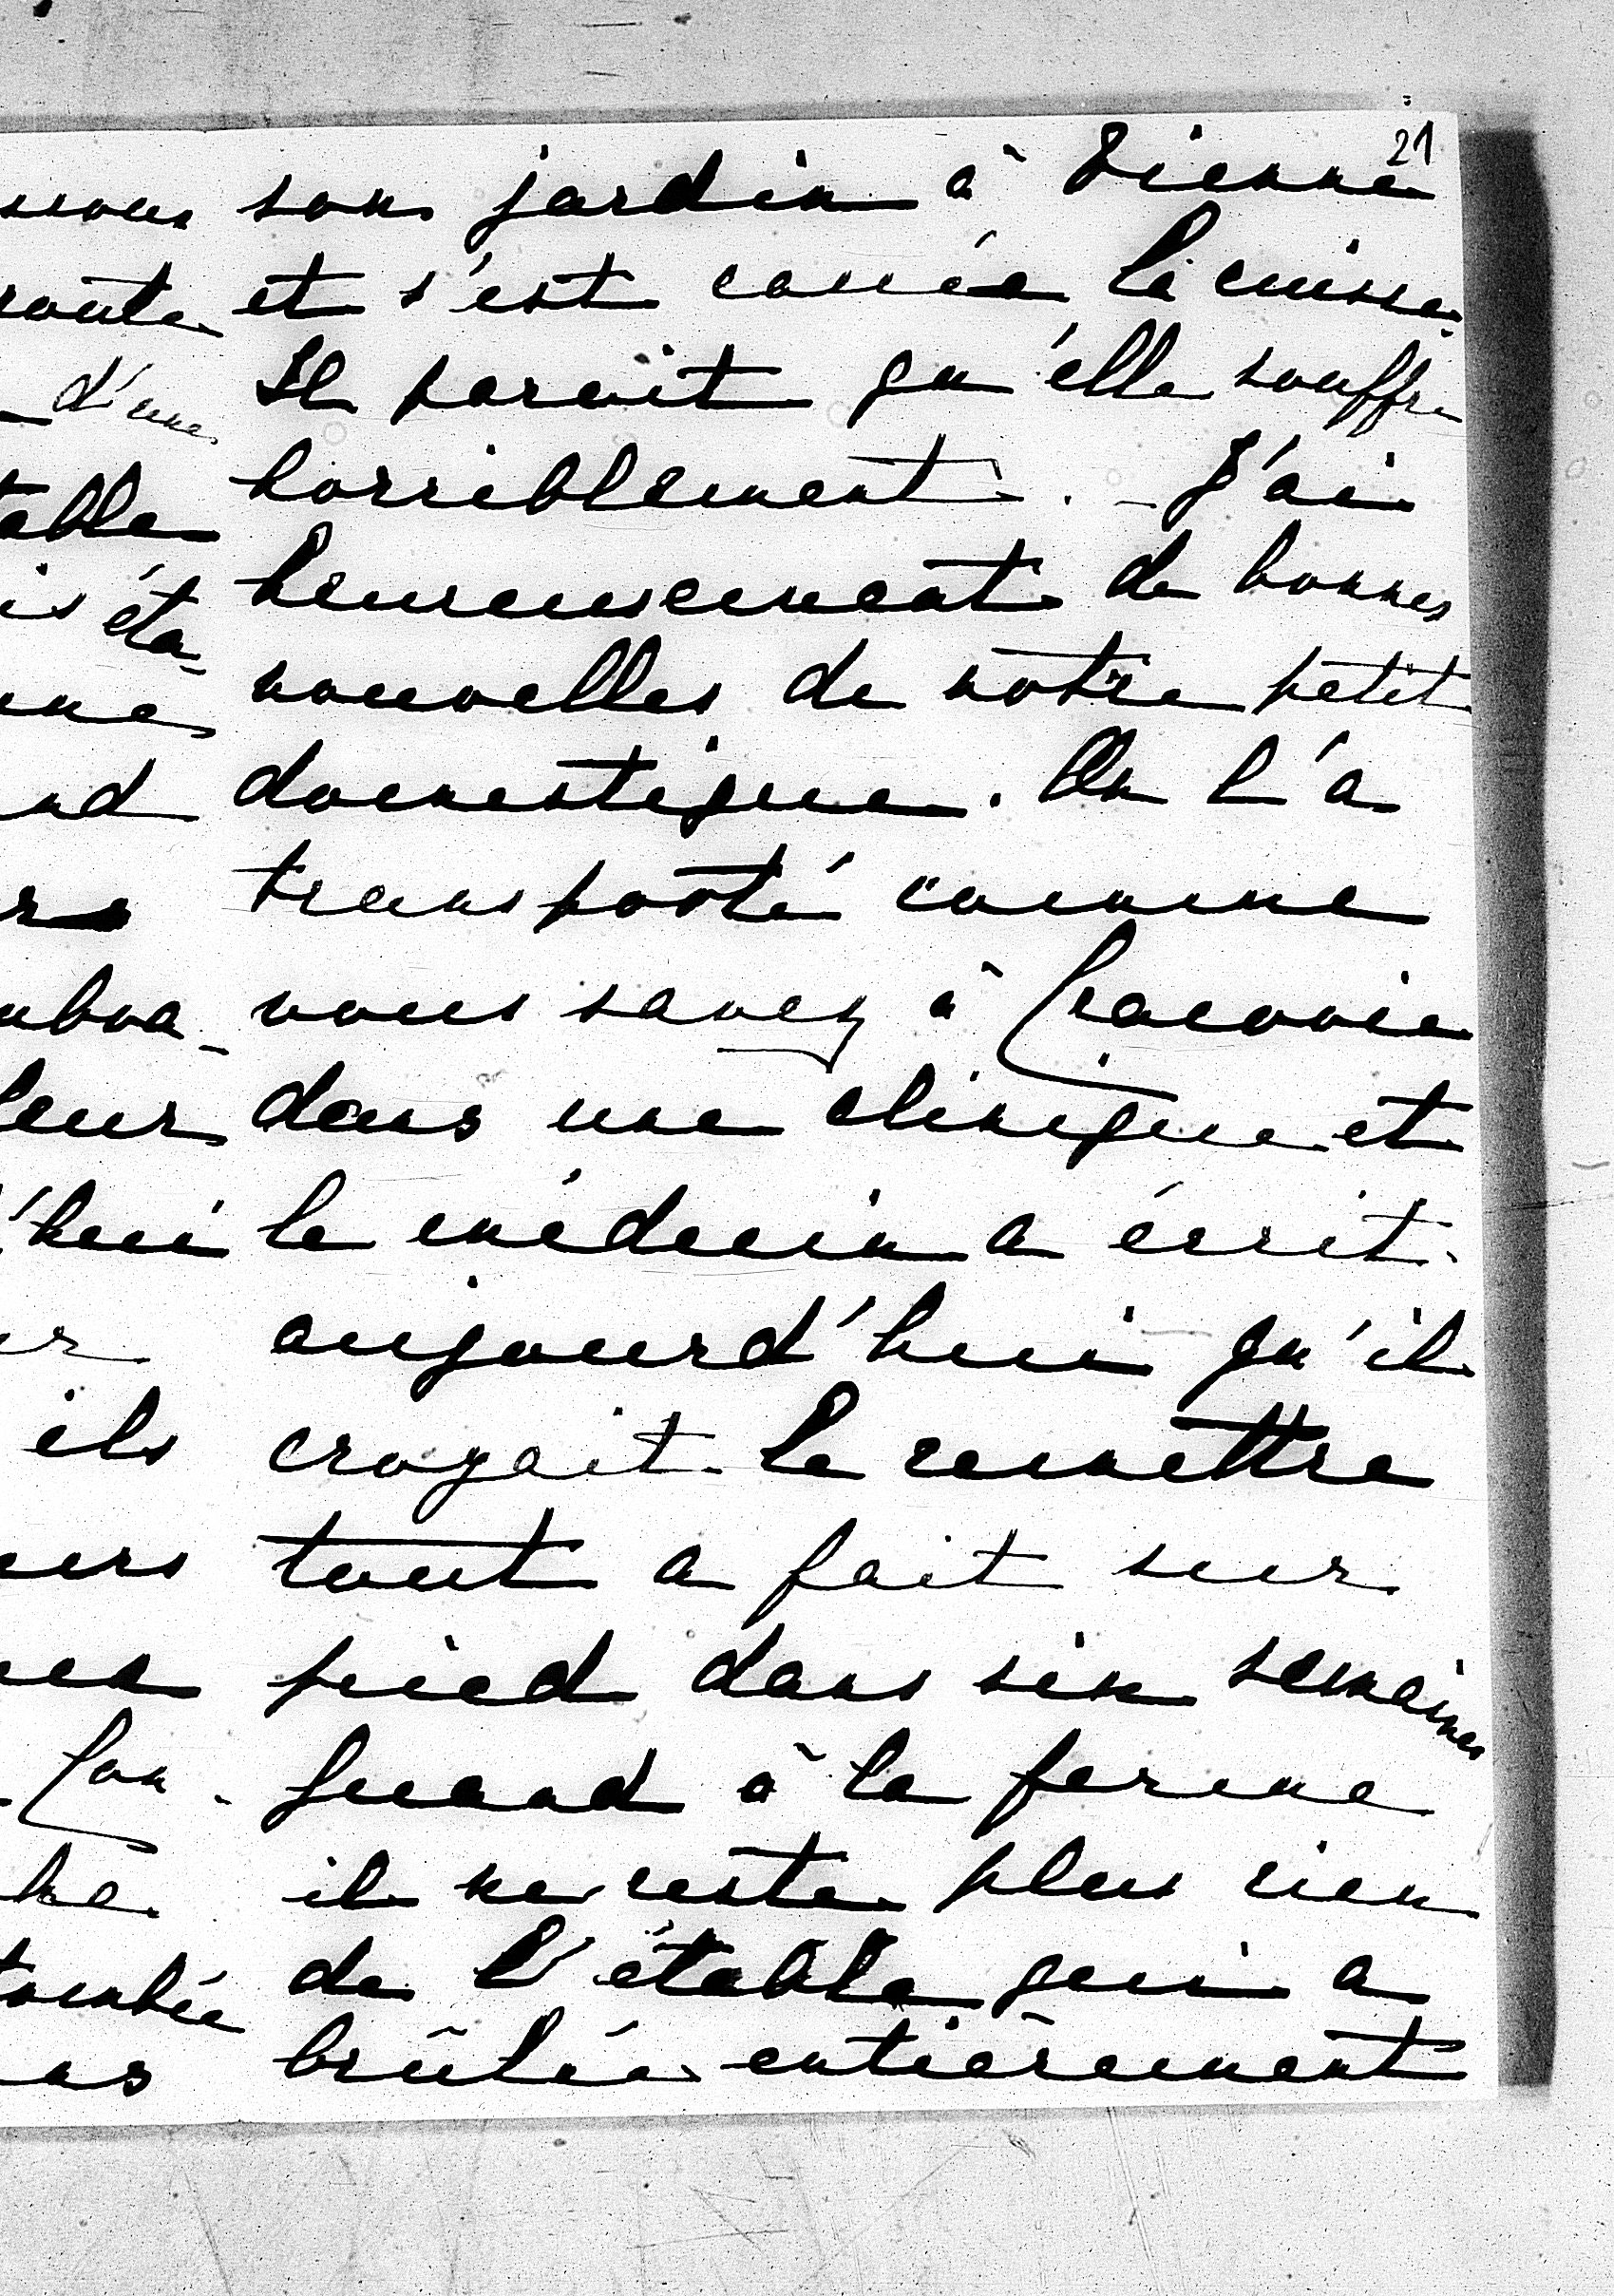 21
son jardin à Vienne
et s'est cassée la cuisse.
Il parait qu'elle souffre
horriblement. - J'ai
heureusement de bonnes
nouvelles de notre petit
domestique. On l'a
transporté comme
vous savez à Cracovie
dans une clinique et
le médecin a écrit
aujourd'hui qu'il
croyait le remettre
tout a fait sur
pied dans six semaines
Quand à la ferme
il ne reste plus rien
de l'étable qui a
brûlée entièrement
nous
route
d'une
table
is éta-
une
nd
rs
mbra-
leur
'hui
ur
ils
urs
en
Con-
he
tombée
ns